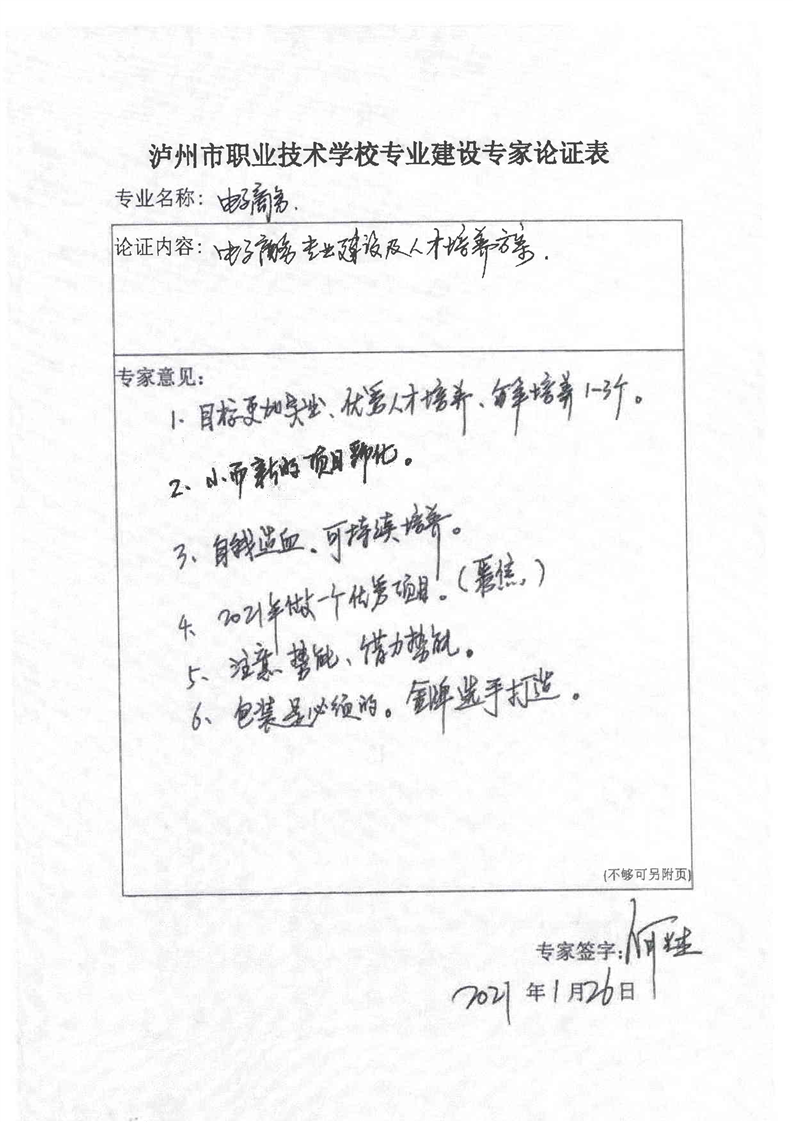 泸州市职业技术学校专业建设专家论证表
专业名称：电子商务.
论证内容：电子商务专业建设及人才培养方案.
专家意见：
1、目标更加突出、优秀人才培养、每年培养1-3个。
2、小而新的项目孵化。
3、自我造血、可持续培养。
4、2021年做一个优秀项目。（聚焦.）
5、注意势能、借力势能。
6、包装是必须的。金牌选手打造。
(不够可另附页)
专家签字：何
2021年1月26日